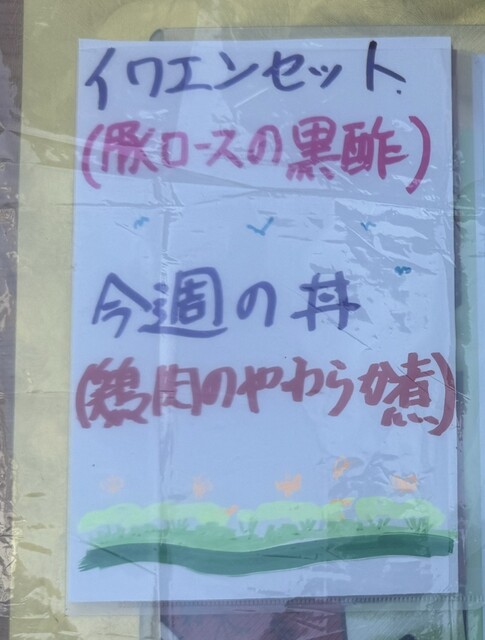 イワエンセット
(豚ロースの黒酢)
今週の丼
(鶏肉のやわらか煮)